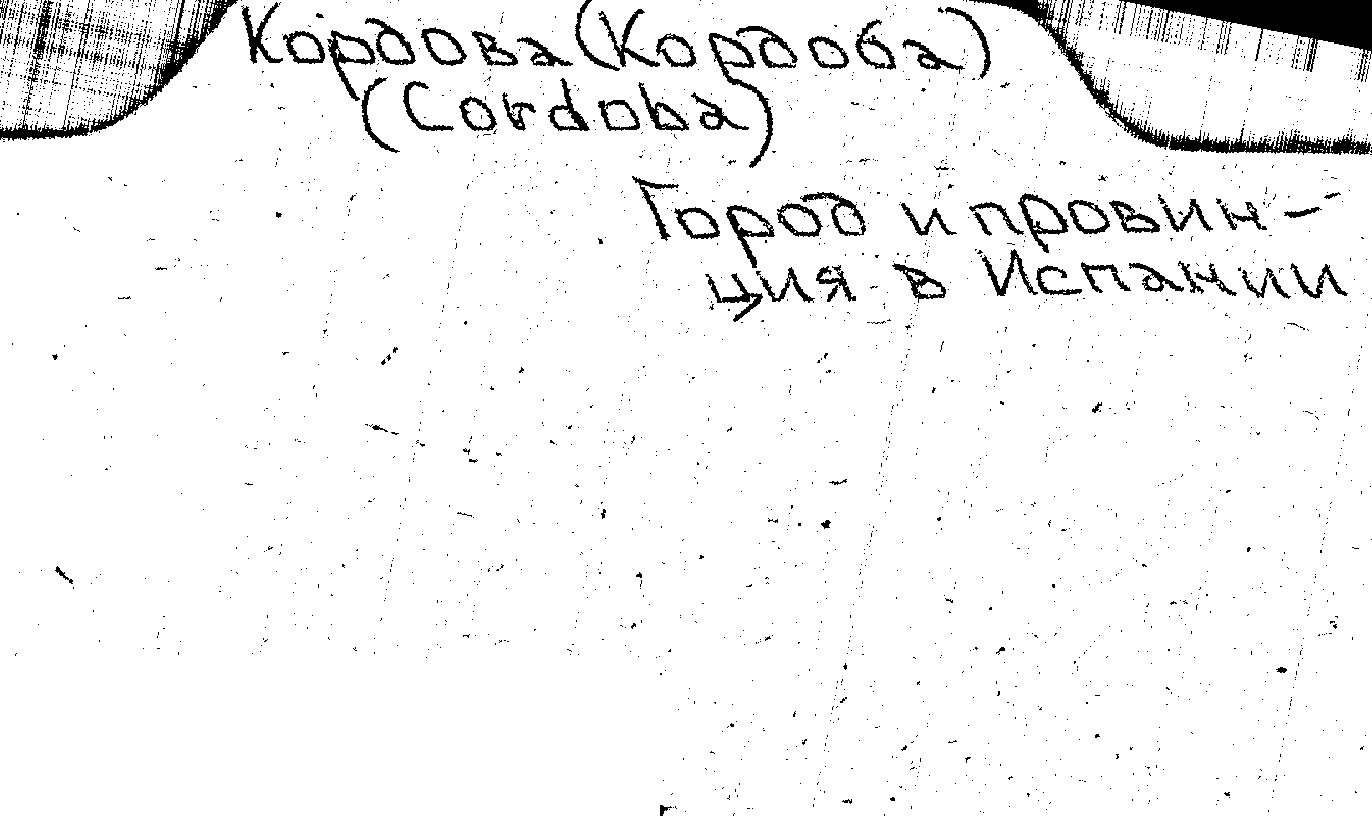 Кордова (Кордоба)
(Cordoba)
Город и провин-
ция в Испании